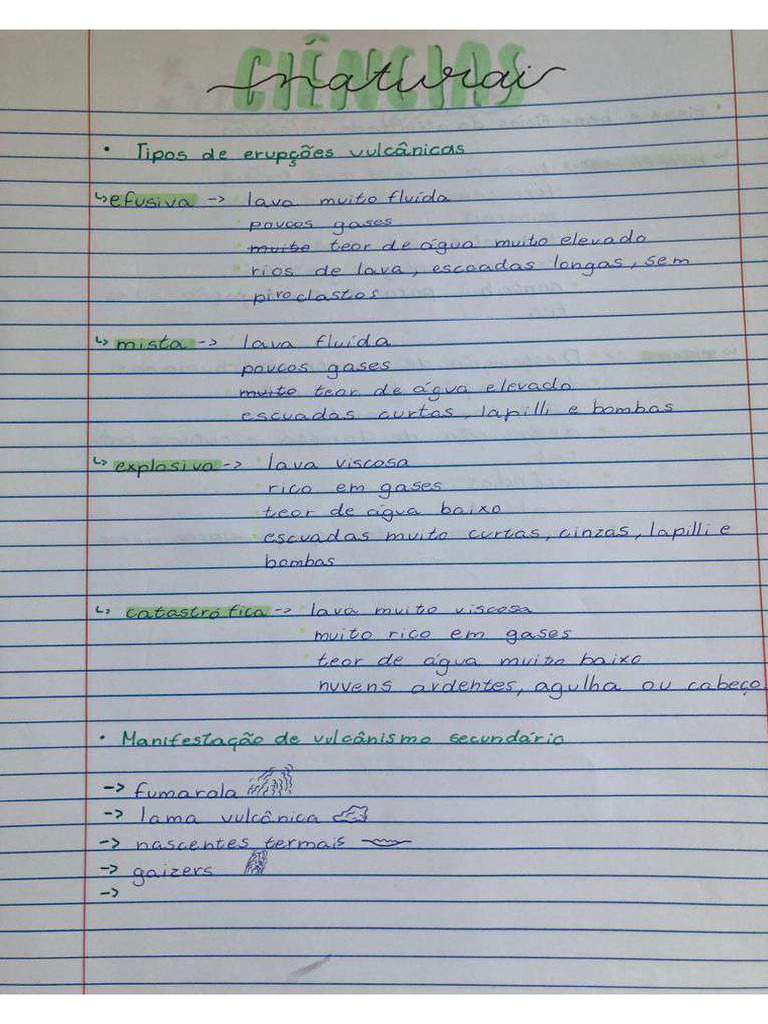 CIÊNCIAS
naturais
• Tipos de erupções vulcânicas
↳ efusiva -> lava muito fluída
poucos gases
muito teor de água muito elevado
rios de lava, escoadas longas, sem
piroclastos
↳ mista -> lava fluída
poucos gases
muito teor de água elevado
escuadas curtas, lapilli e bombas
↳ explosiva -> lava viscosa
rico em gases
teor de água baixo
escuadas muito curtas, cinzas, lapilli e
bombas
↳ catastrófica -> lava muito viscosa
muito rico em gases
teor de água muito baixo
nuvens ardentes, agulha ou cabeço
• Manifestação de vulcânismo secundário
-> fumarola
-> lama vulcânica
-> nascentes termais
-> gaizers
->